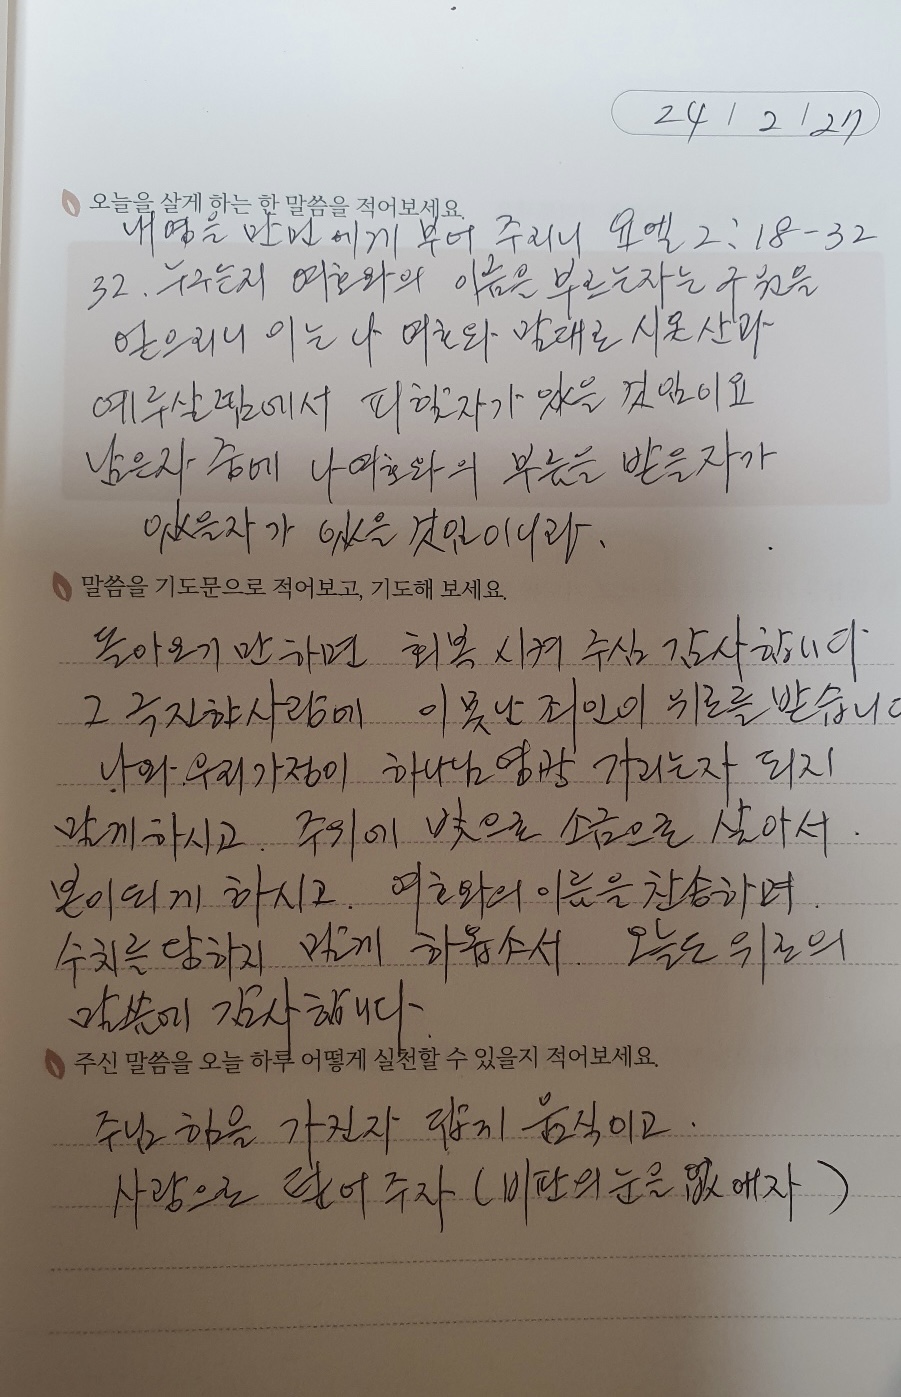 24 / 2 / 27
오늘을 살게 하는 한 말씀을 적어보세요.
내 영을 만민에게 부어 주리니 요엘 2:18-32
32. 누구든지 여호와의 이름을 부르는자는 구원을
얻으리니 이는 나 여호와 말대로 시온산과
예루살렘에서 피할자가 있을 것임이요
남은자 중에 나 여호와의 부름을 받을자가
있을자가 있을 것임이니라.
말씀을 기도문으로 적어보고, 기도해 보세요.
돌아오기만 하면 회복시켜 주심 감사합니다
그 극진한 사랑에 이 못난 죄인이 위로를 받습니다
나와 우리가정이 하나님 영광 가리는자 되지
말게 하시고. 주위에 빛으로 소금으로 살아서.
본이되게 하시고. 여호와의 이름을 찬송하며.
수치를 당하지 말게 하옵소서. 오늘도 위로의
말씀에 감사합니다.
주신 말씀을 오늘 하루 어떻게 실천할 수 있을지 적어보세요.
주님 힘을 가진자 답게 움직이고.
사랑으로 덮어주자 (비판의 눈을 없애자)